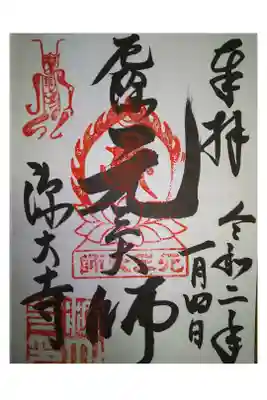 奉拝
令和二年
一月四日
元三大師
元三大師
深大寺